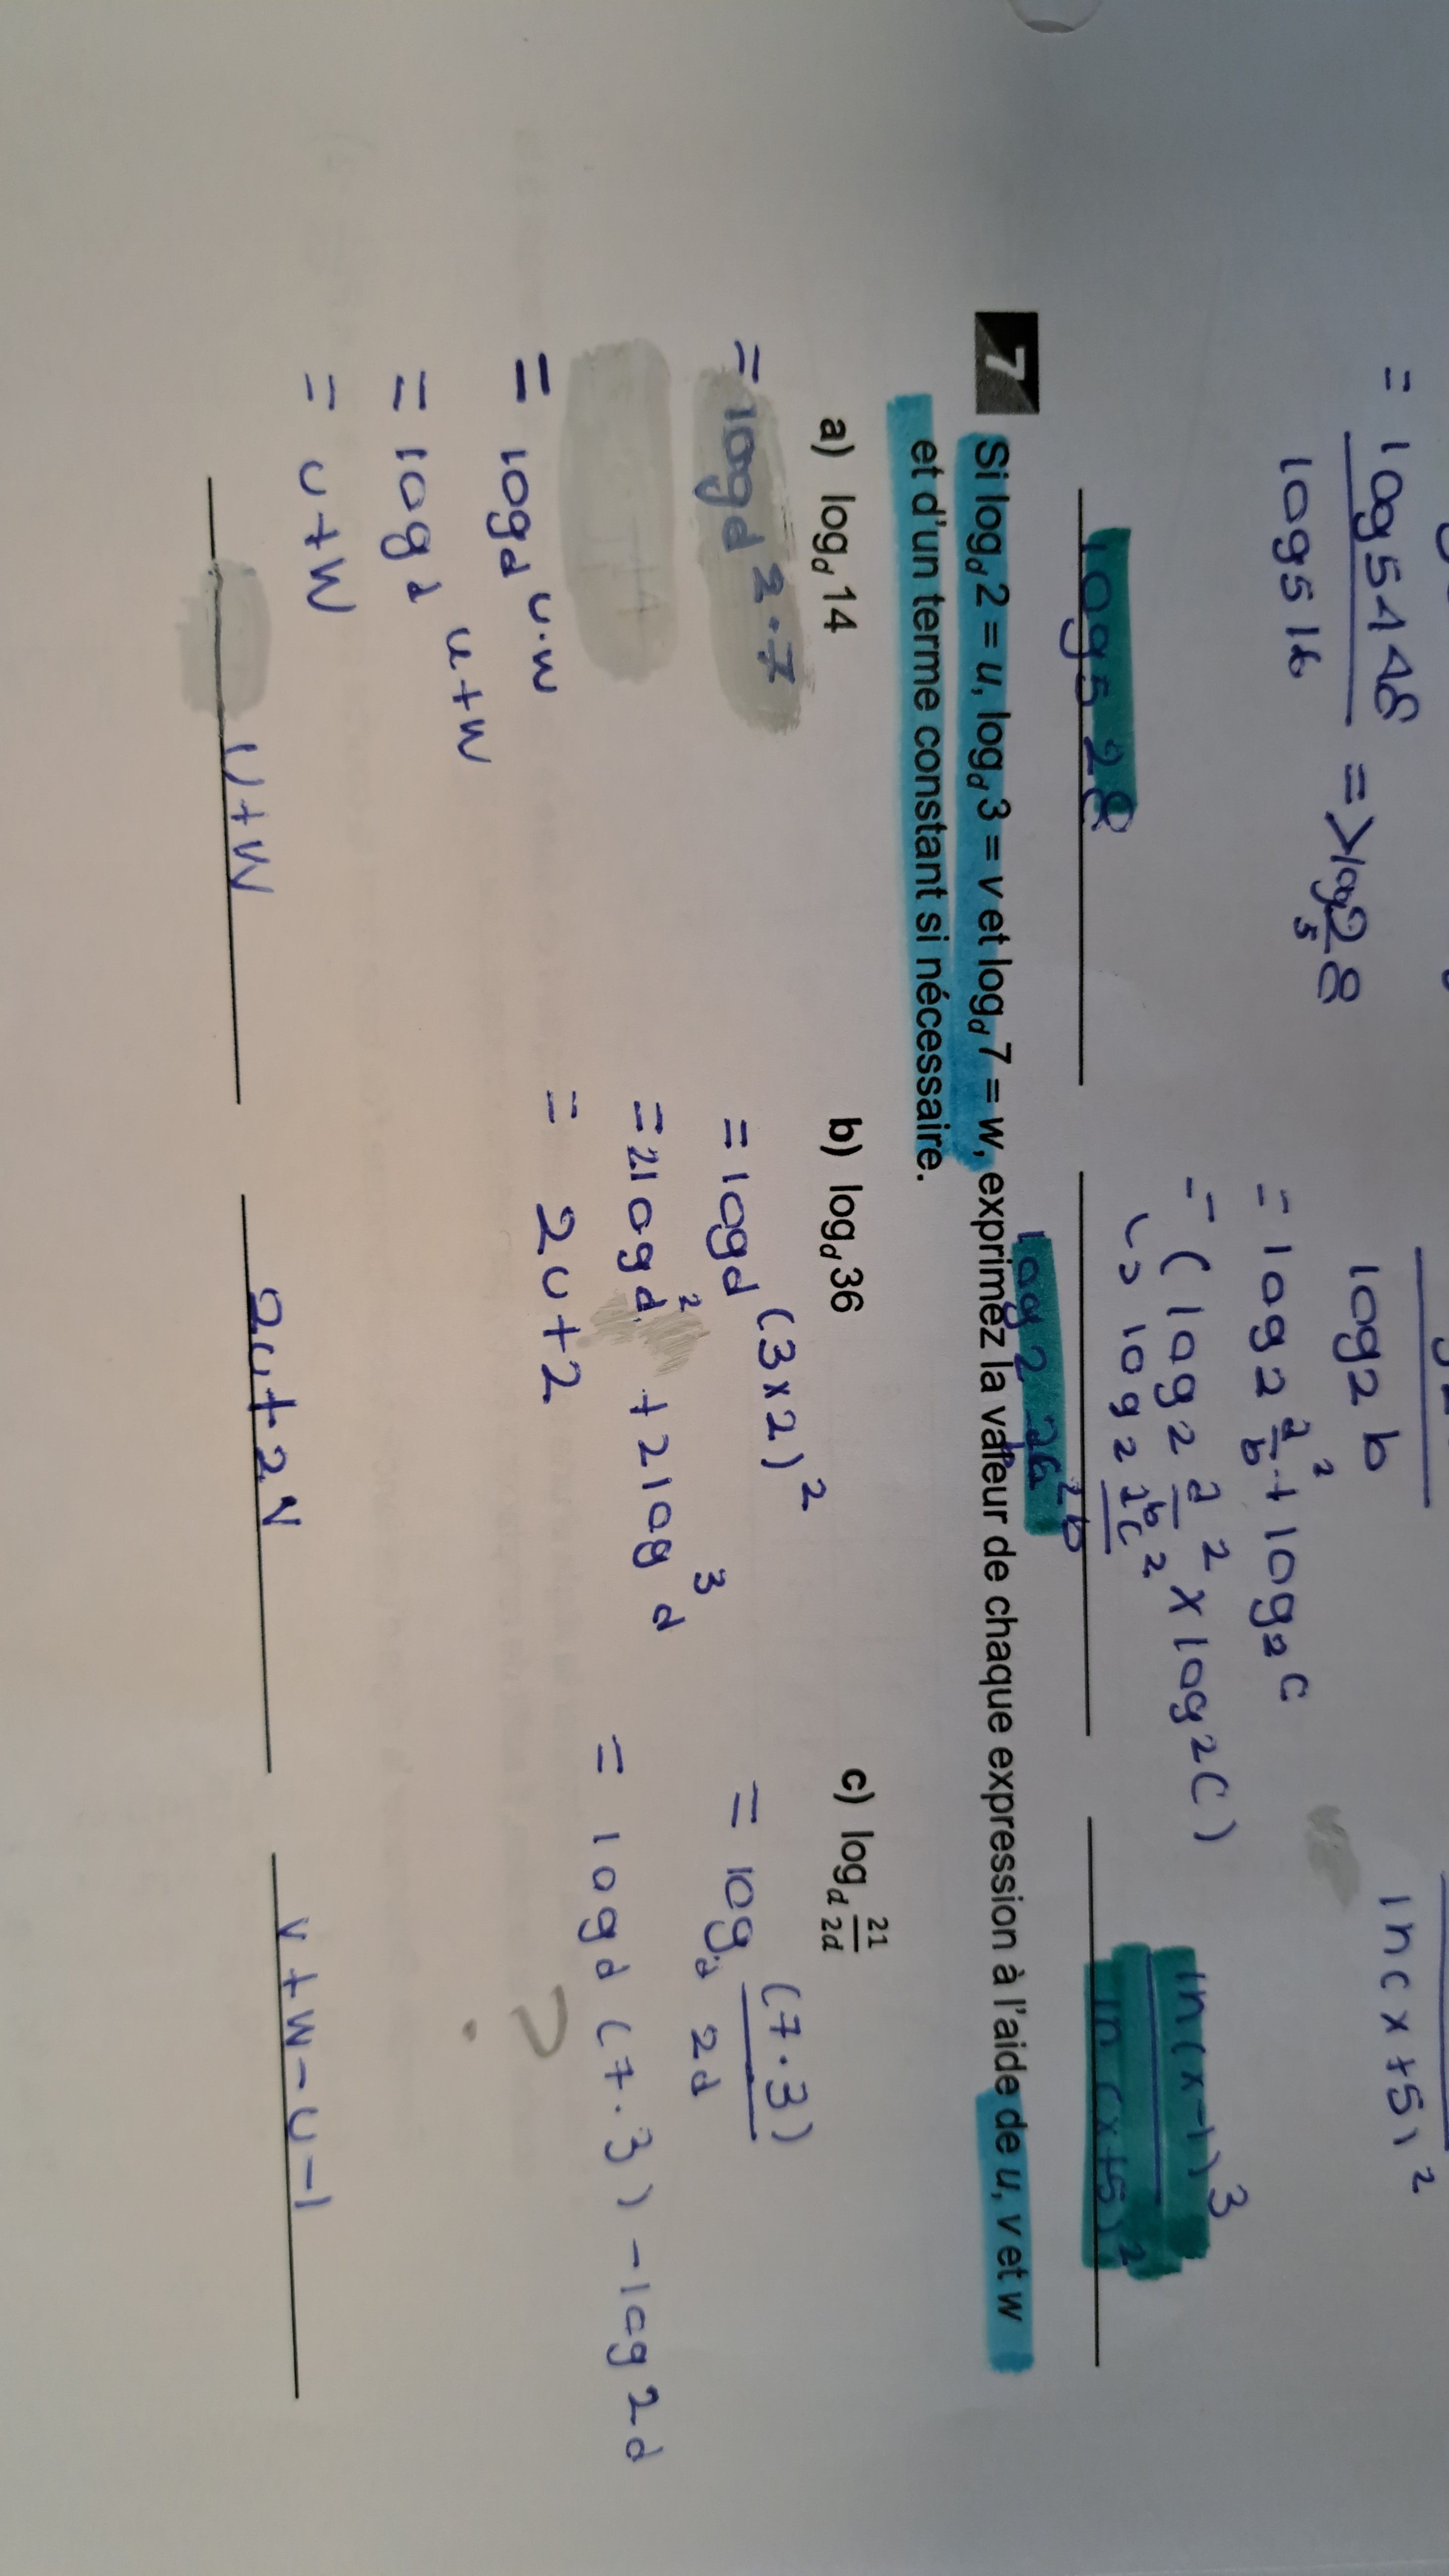 = log5 448 => log 28
log5 16 5
log5 28
log2 b
= log2 a/b² + log2 c
= (log2 a/b² x log2 c)
ln(x+5)²
ln(x-1)³
ln(x+5)²
7 Si log_d 2 = u, log_d 3 = v et log_d 7 = w, exprimez la valeur de chaque expression à l'aide de u, v et w
et d'un terme constant si nécessaire.
a) log_d 14
= logd 2·7
= logd u·w
= logd u+w
= u+w
u+w
b) log_d 36
= logd (3x2)²
= 2logd² + 2logd³
= 2u+2
2u+2v
c) log_d 21/2d
= log_d (7·3)/2d
= logd (7·3) - log2d
?
v+w-u-1